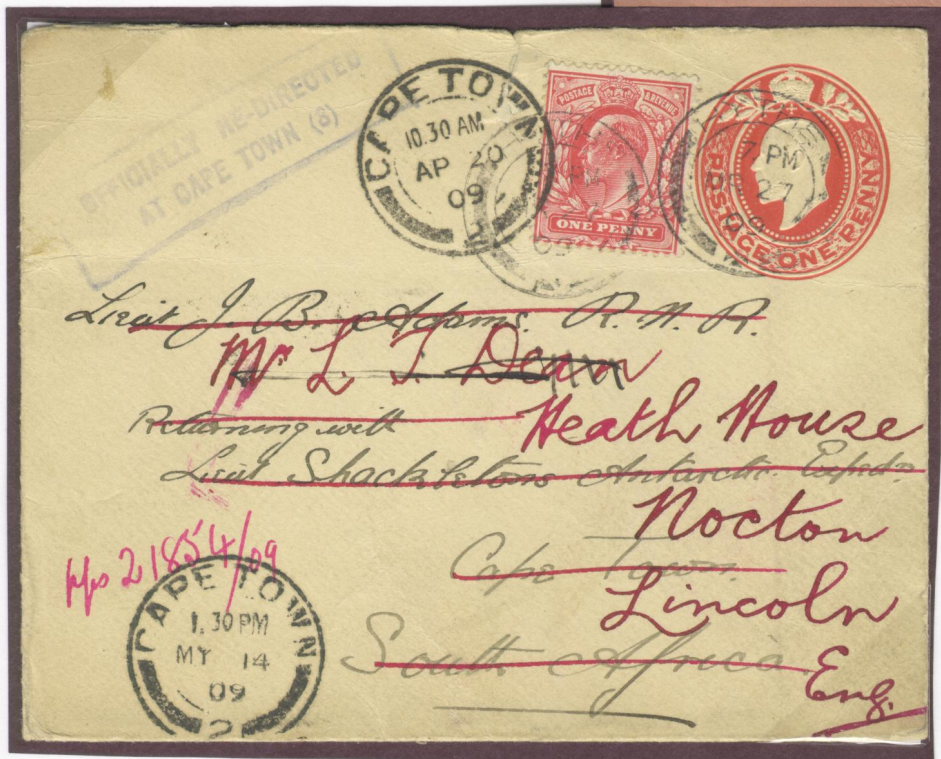 OFFICIALLY RE-DIRECTED
AT CAPE TOWN (8)
CAPE TOWN
10.30 AM
AP 20
09
POSTAGE & REVENUE
ONE PENNY
7 PM
27
09
POSTAGE ONE PENNY
Lieut J. B. Adams. R.N.R.
Mr L. T. Dean
Returning with
Heath House
Lieut Shackletons Antarctic Expedn.
Nocton
Cape Town.
Lincoln
South Africa.
Eng.
21854/09
CAPE TOWN
1.30 PM
MY 14
09
2